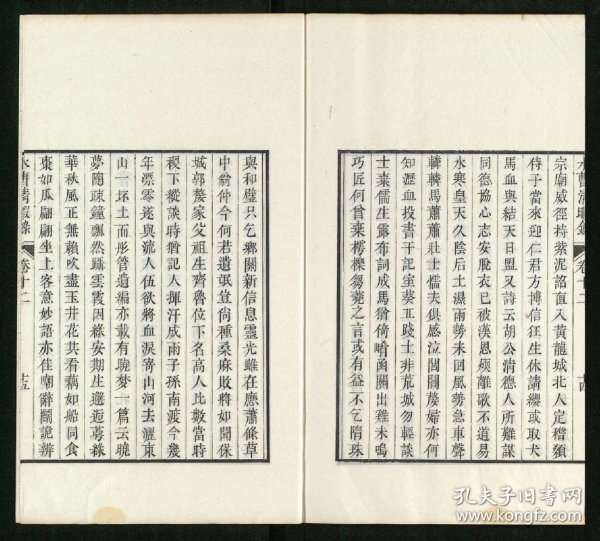 水曹清暇錄
卷十二
古
宗廟威徑持紫泥詔直入黃龍城北人定稽顙
侍于當來迎仁君方博信狂生休請纓或取犬
馬血與結天日盟又詩云胡公清德人所難謀
同德協心志安脫衣已被漢恩煖離歌不道易
水寒皇天久陰后土濕雨勢未回風勢急車聲
轔轔馬蕭蕭壯士儒夫俱感泣閭閻嫠婦亦何
知瀝血投書干記室葵丘踐土非荒城勿輕談
士棄儒生露布詞成馬猶倚崤函關出雞未鳴
巧匠何曾棄樗櫟芻蕘之言或有益不乞隋珠
與和璧只乞鄉關新信息靈光雖在應蕭條草
中翁仲今何若遺氓豈尚種桑麻敗將如聞保
城郭嫠家父祖生齊魯位下名高人比數當時
稷下縱談時猶記人揮汗成雨子孫南渡今幾
年漂零遂與流人伍欲將血淚寄山河去灑東
山一抔土而彤管遺編亦載有曉夢一篇云曉
夢隨疎鐘飄然躡雲霞因緣安期生邂逅萼綠
華秋風正無賴吹盡玉井花共看藕如船同食
棗如瓜翩翩坐上客意妙語亦佳嘲辭鬬詭辨
水曹清暇錄
卷十二
十五
孔夫子旧书网
www.kongfz.com